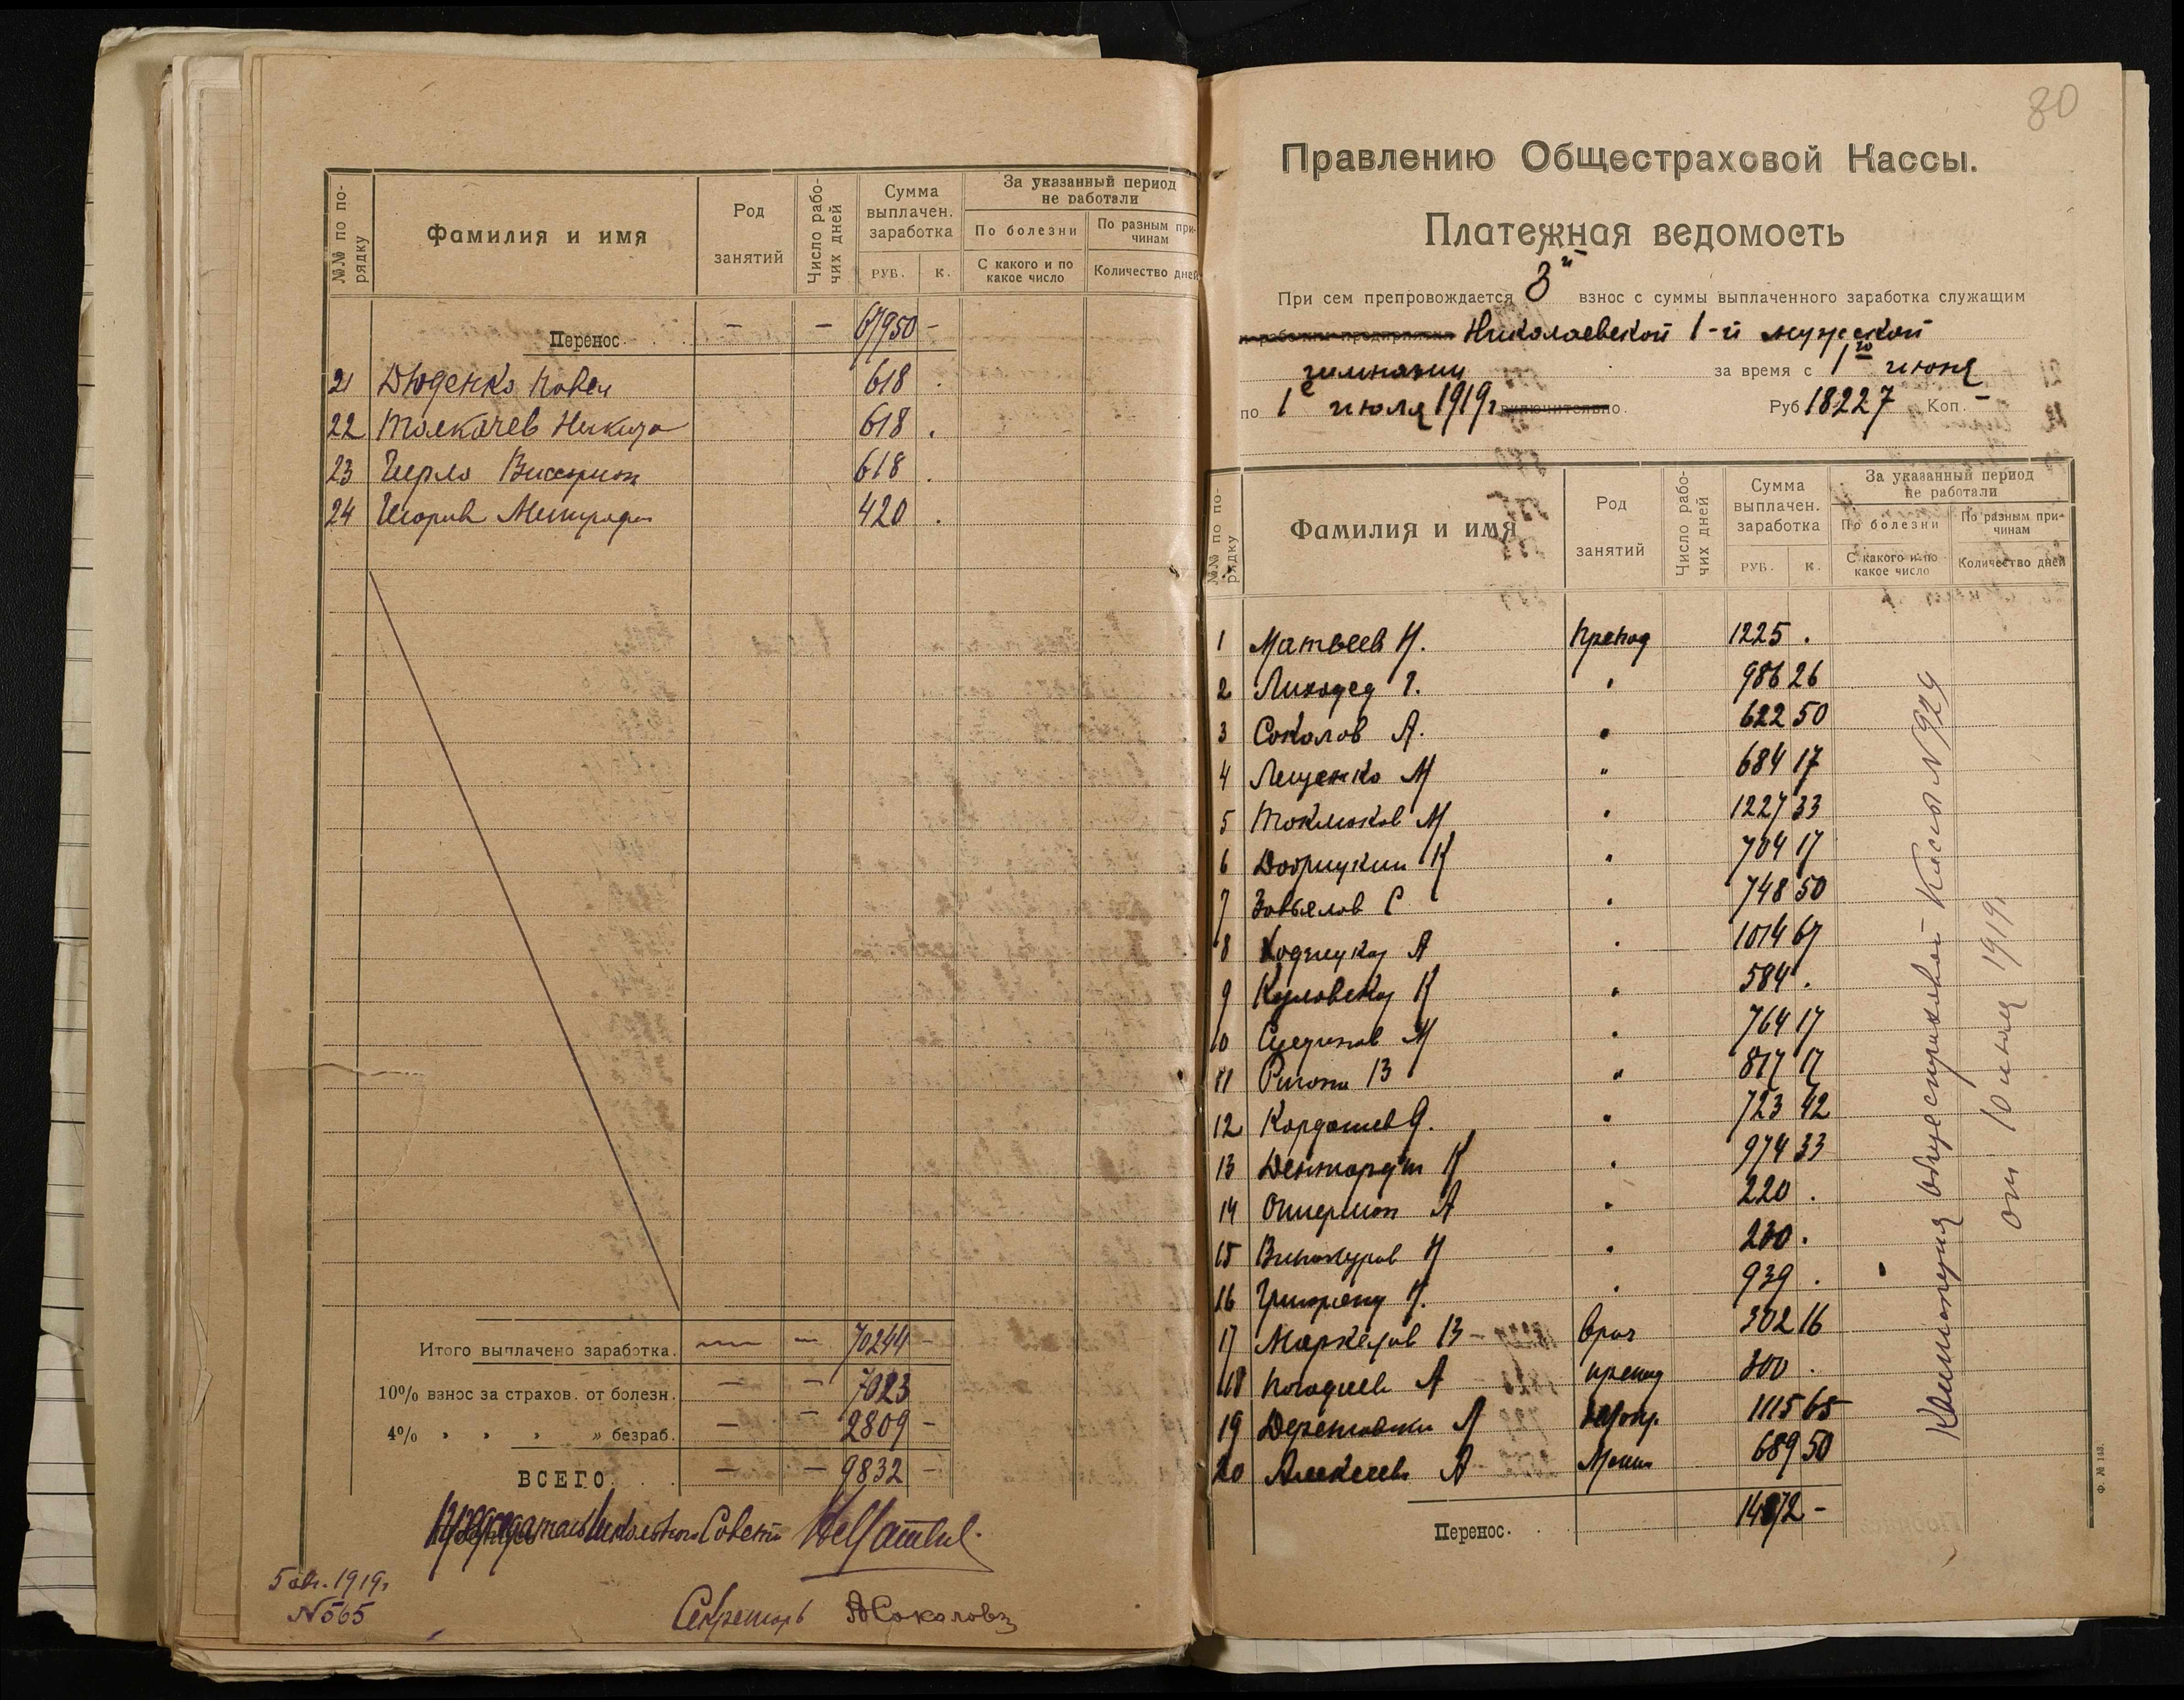 №№ по порядку
Фамилия и имя
Род занятий
Число рабочих дней
Сумма выплачен. заработка
РУБ. К.
За указанный период не работали
По болезни
По разным причинам
С какого и по какое число
Количество дней
Перенос. — — 67950 —
21 Дюденко Павел 618 .
22 Толкачев Никита 618 .
23 Гирло Виссарион 618 .
24 Игорив Митрофан 420 .
Итого выплачено заработка. — — 70244 —
10% взнос за страхов. от болезн. — — 7023
4% „ „ „ » безраб. — — 2809 —
ВСЕГО. — — 9832 —
Школьного Совета
5 авг. 1919г
N 565
Секретарь АСоколовъ
80
Правлению Общестраховой Кассы.
Платежная ведомость
При сем препровождается 3й взнос с суммы выплаченного заработка служащим
и рабочим предприятия Николаевской 1-й мужской
гимназии за время с 1го июня
по 1е июля 1919г включительно. Руб 18227 Коп. —
№№ по порядку
Фамилия и имя
Род занятий
Число рабочих дней
Сумма выплачен. заработка
РУБ. К.
За указанный период не работали
По болезни
По разным причинам
С какого и по какое число
Количество дней
1 Матвеев Н. препод 1225 .
2 Лиходед Г. " 986 26
3 Соколов А. " 622 50
4 Лещенко М " 684 17
5 Токмаков М " 1227 33
6 Добрицкий К " 704 17
7 Завьялов С " 748 50
8 Ходзицкая А " 1014 67
9 Козловская К " 584 .
10 М " 764 17
11 В " 817 17
12 Кордашев " 723 42
13 К " 974 33
14 Ошерман А " 220 .
15 Винокуров Н " 200 .
16 Н. " 939 .
17 Маркелов В — врач 302 16
18 А препод 300 .
19 1115 65
20 Алексеев А 689 50
Перенос. 14872 —
Квитанция общестраховой Кассы N 929
от 10 июля 1919г
Ф. № 143.